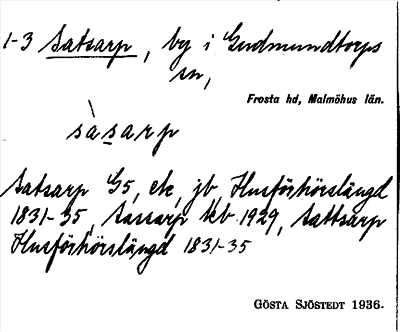 1-3 Satsarp, by i Gudmundtorps
sn,
Frosta hd, Malmöhus län.
sàsarp
Satsarp G5, etc, jb, Husförhörslängd
1831-35, Sassarp tkb 1929, Sattsarp
Husförhörslängd 1831-35
GÖSTA SJÖSTEDT 1936.